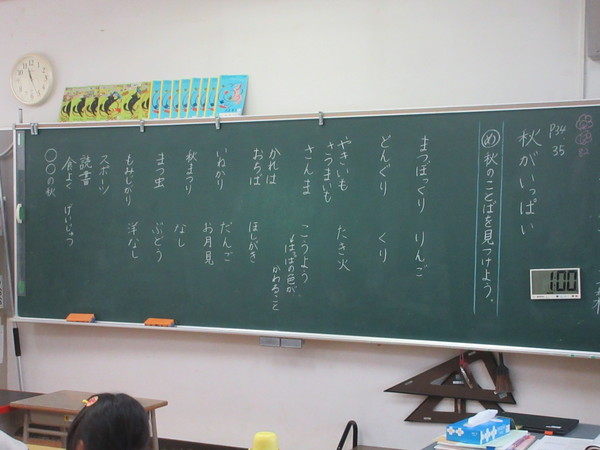 P34
35
秋がいっぱい
め 秋のことばを見つけよう。
まつぼっくり りんご
どんぐり くり
やきいも
さつまいも たき火
さんま こうよう
はっぱの色が
かわること
かれは
おちば ほしがき
いねかり だんご
お月見
秋まつり なし
まつ虫 ぶどう
もみじがり 洋なし
スポーツ
読書
食よく げいじゅつ
〇〇の秋
1:00